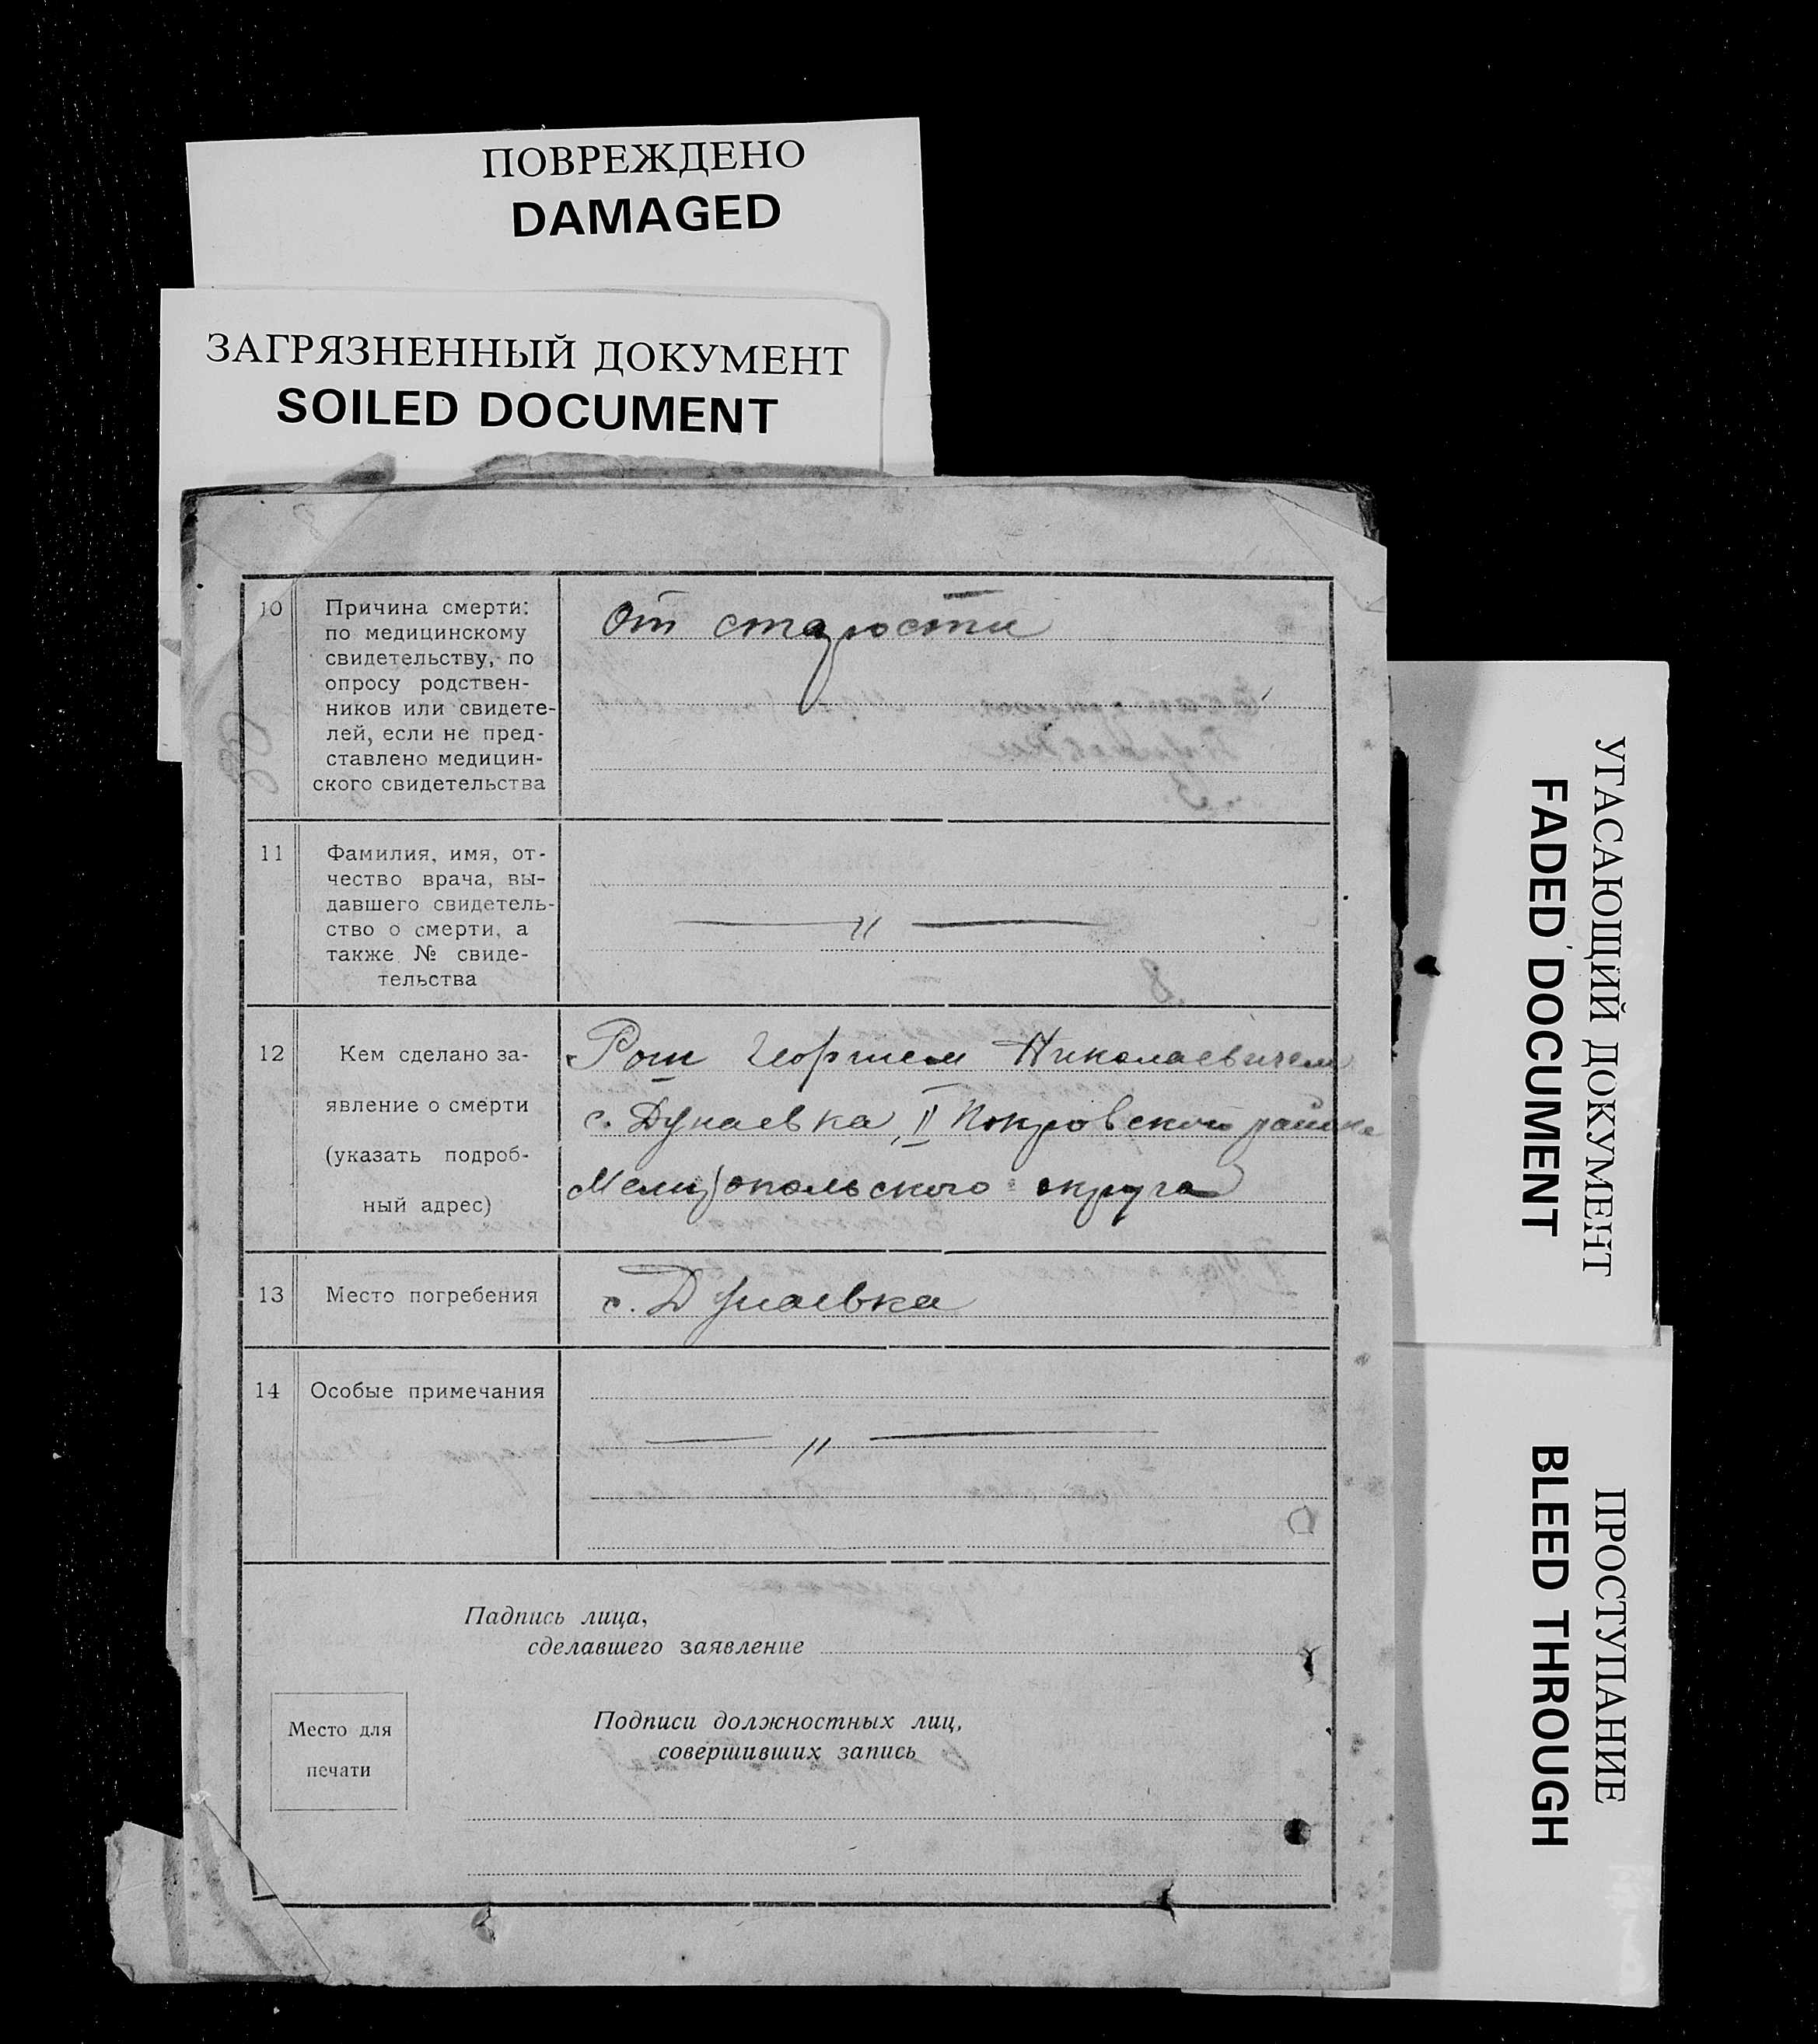 ПОВРЕЖДЕНО
DAMAGED
ЗАГРЯЗНЕННЫЙ ДОКУМЕНТ
SOILED DOCUMENT
10
Причина смерти:
по медицинскому
свидетельству, по
опросу родствен-
ников или свидете-
лей, если не пред-
ставлено медицин-
ского свидетельства
От старости
11
Фамилия, имя, от-
чество врача, вы-
давшего свидетель-
ство о смерти, а
также № свиде-
тельства
— „ —
12
Кем сделано за-
явление о смерти
(указать подроб-
ный адрес)
Рот Георгием Николаевичем
с. Дунаевка, II Покровского района
Мелитопольского округа
13
Место погребения
с. Дунаевка
14
Особые примечания
— „ —
Падпись лица,
сделавшего заявление
Место для
печати
Подписи должностных лиц,
совершивших запись
УГАСАЮЩИЙ ДОКУМЕНТ
FADED DOCUMENT
ПРОСТУПАНИЕ
BLEED THROUGH